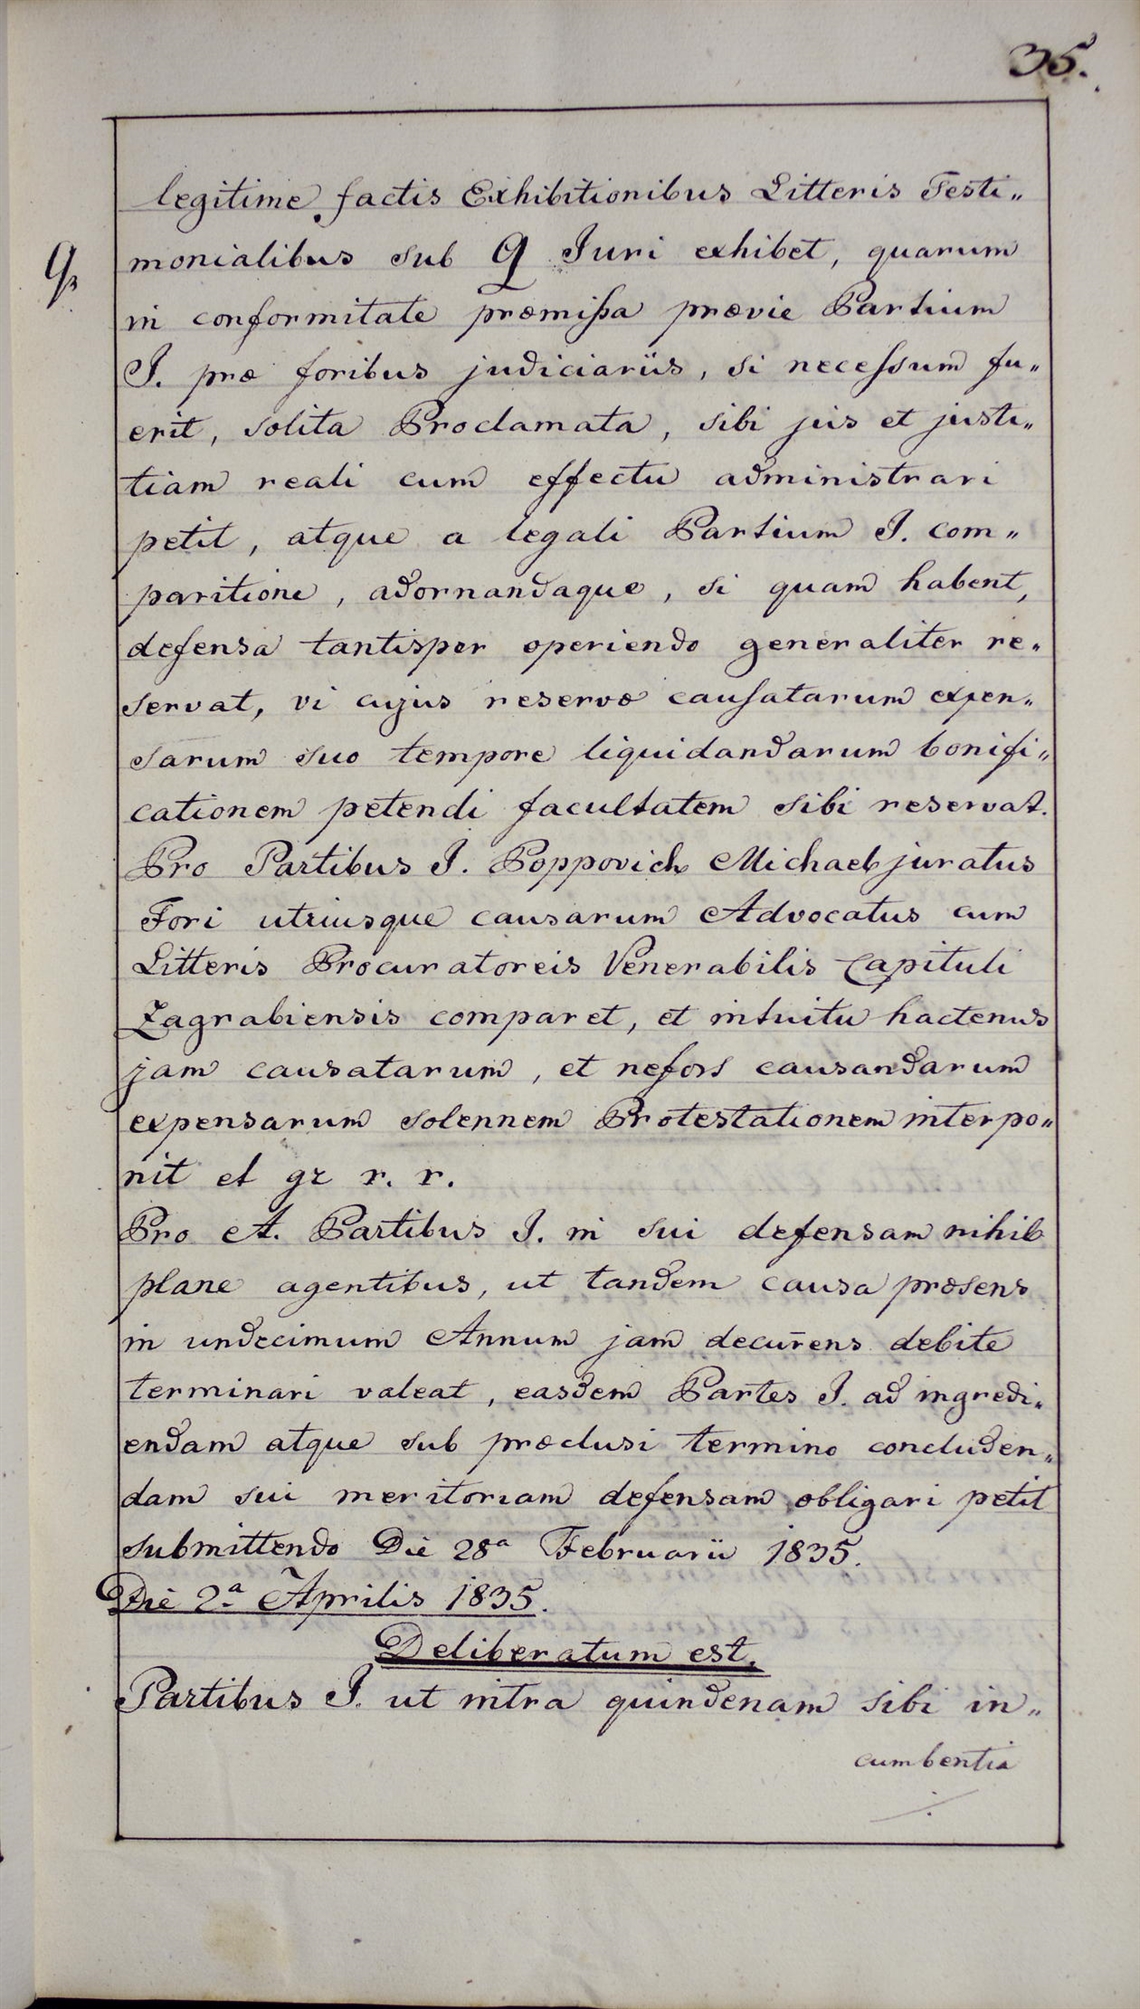 35.
legitime factis Exhibitionibus Litteris Testi„
Q.
monialibus sub Q Juri exhibet, quarum
in conformitate præmissa prævie Partium
I. præ foribus judiciariis, si necessum fu„
erit, solita Proclamata, sibi jus et justi„
tiam reali cum effectu administrari
petit, atque a legali Partium I. com„
paritione, adornandaque, si quam habent,
defensa tantisper operiendo generaliter re„
servat, vi cujus reservæ causatarum expen„
sarum suo tempore liquidandarum bonifi„
cationem petendi facultatem sibi reservat.
Pro Partibus I. Poppovich Michael juratus
Fori utriusque causarum Advocatus cum
Litteris Procuratoreis Venerabilis Capituli
Zagrabiensis comparet, et intuitu hactenus
jam causatarum, et nefors causandarum
expensarum solennem Protestationem interpo„
nit et gr r. r.
Pro A. Partibus I. in sui defensam nihil
plane agentibus, ut tandem causa præsens
in undecimum Annum jam decur̄ens debite
terminari valeat, easdem Partes I. ad ingredi„
endam atque sub præclusi termino concluden„
dam sui meritoriam defensam obligari petit
submittendo Die 28ª Februarii 1835.
Die 2ª Aprilis 1835.
Deliberatum est.
Partibus I. ut intra quindenam sibi in„
cumbentia